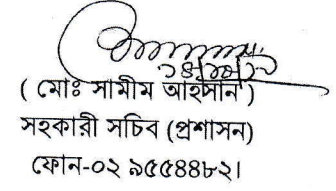 ( মোঃ সামীম আহসান )
সহকারী সচিব (প্রশাসন)
ফোন-০২ ৯৫৫৪৪৮২।